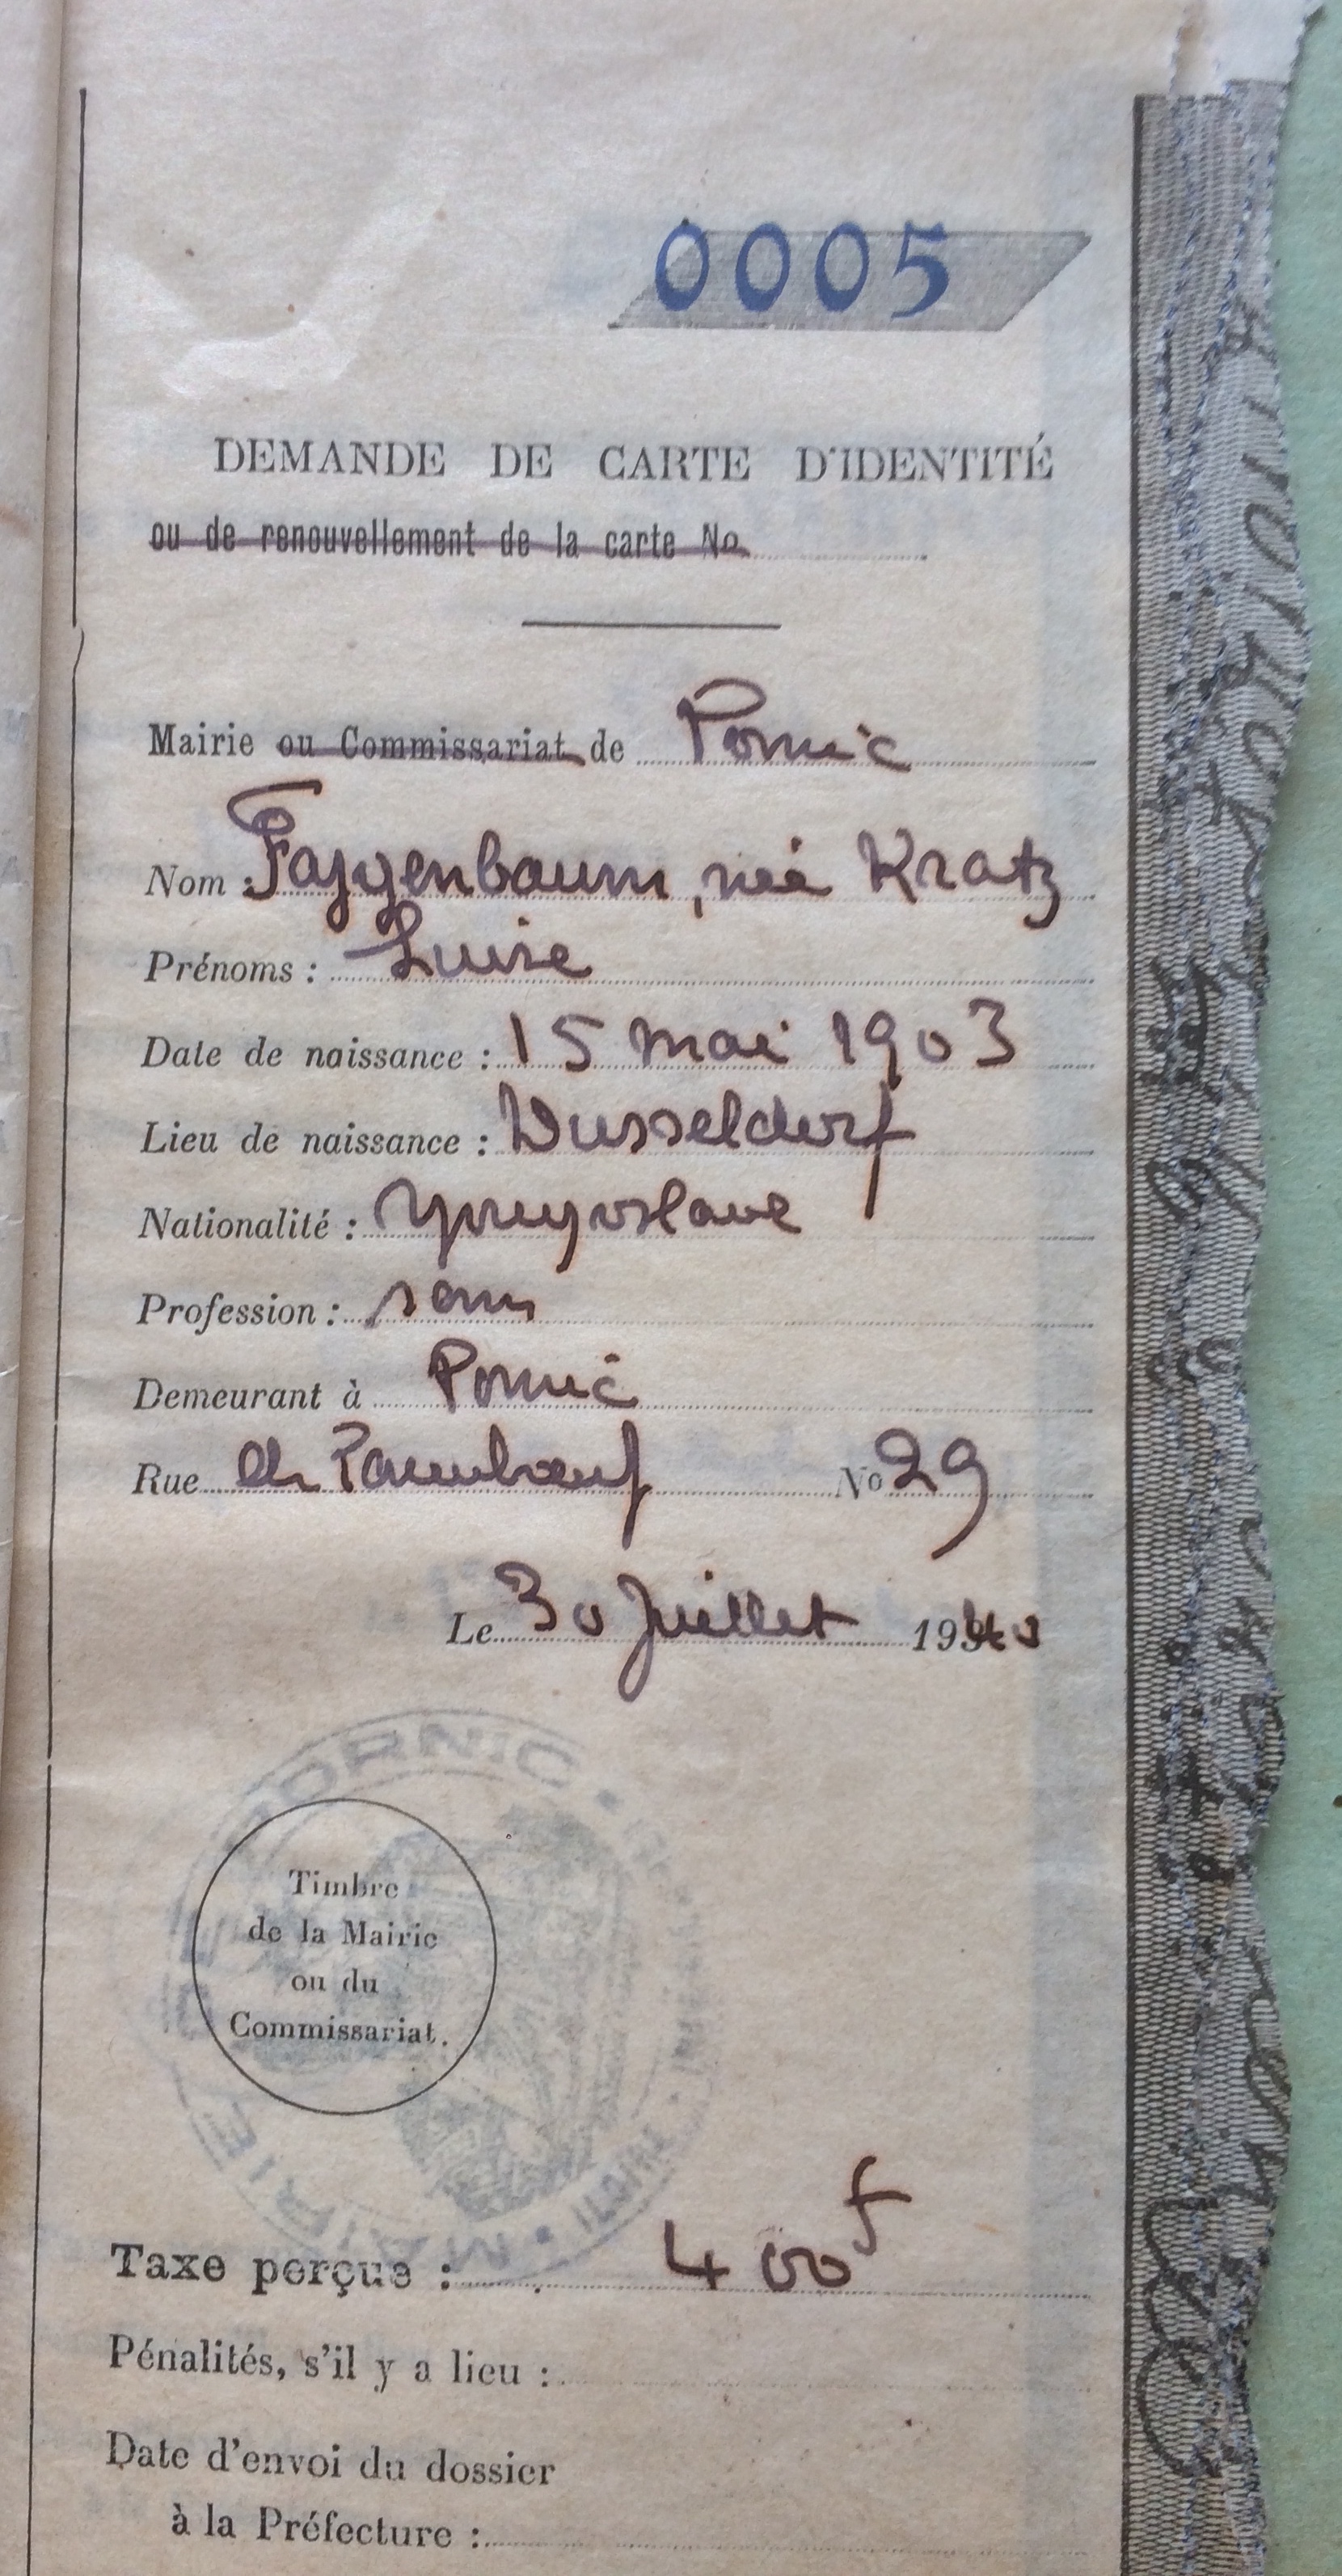 0005
DEMANDE DE CARTE D'IDENTITÉ
ou de renouvellement de la carte No
Mairie ou Commissariat de Pornic
Nom : Faygenbaum, née Kratz
Prénoms : Luise
Date de naissance : 15 mai 1903
Lieu de naissance : Dusseldorf
Nationalité : Yougoslave
Profession : sans
Demeurant à Pornic
Rue de Paimboeuf No 29
Le 30 Juillet 1940
PORNIC
Timbre
de la Mairie
ou du
Commissariat.
MAIRIE
Taxe perçue : 400 f
Pénalités, s'il y a lieu :
Date d'envoi du dossier
à la Préfecture :